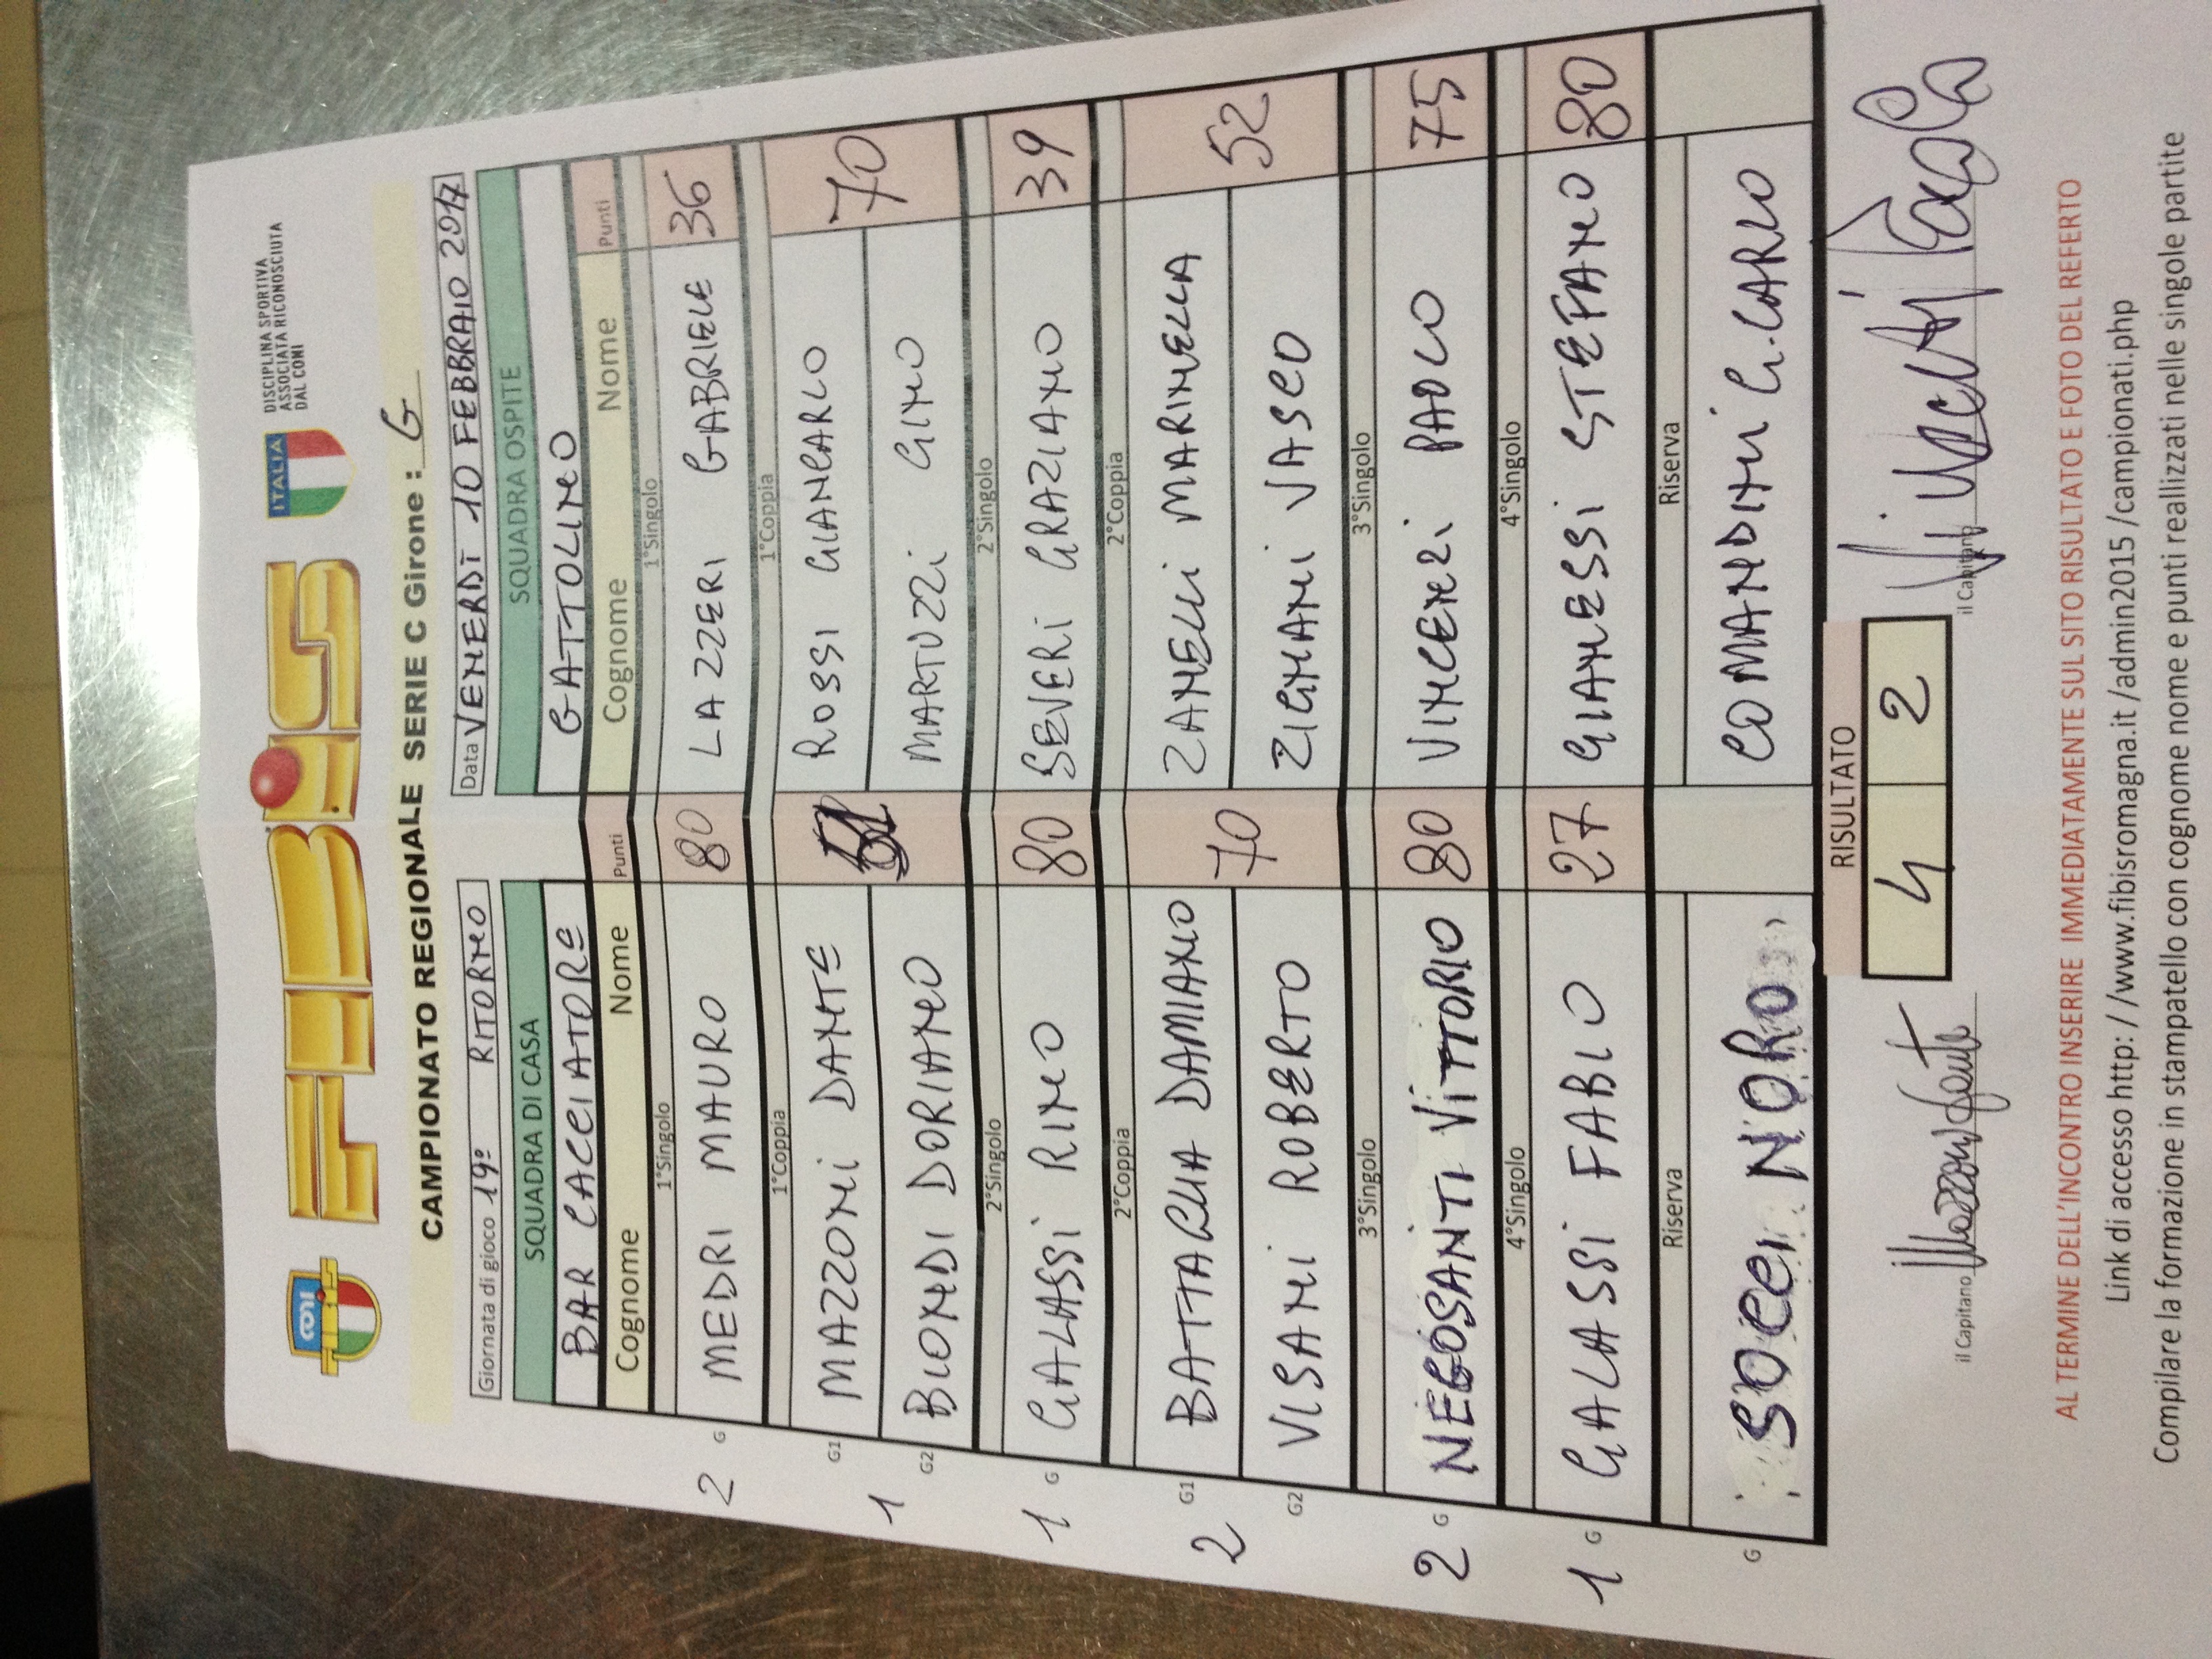 FIBiS
ITALIA
DISCIPLINA SPORTIVA
ASSOCIATA RICONOSCIUTA
DAL CONI
CAMPIONATO REGIONALE SERIE C Girone : G
Giornata di gioco 19° RITORNO
Data VENERDI 10 FEBBRAIO 2017
SQUADRA DI CASA SQUADRA OSPITE
BAR CACCIATORE GATTOLINO
Cognome Nome Punti Cognome Nome Punti
1°Singolo 1°Singolo
2 G MEDRI MAURO 80 LAZZERI GABRIELE 36
1°Coppia 1°Coppia
G1 MAZZONi DANTE ROSSI GIANCARLO 70
1
G2 BIONDI DORIANO MARTUZZi GINO
2°Singolo 2°Singolo
1 G GALASSi RINO 80 SEVERi GRAZIANO 39
2°Coppia 2°Coppia
G1 BATTAGLIA DAMIANO 70 ZANELLi MARINELLA 52
2
G2 VISANi ROBERTO ZIGNANi VASCO
3°Singolo 3°Singolo
2 G NEGOSANTI ViTTORIO 80 VINCENZi PAOLO 75
4°Singolo 4°Singolo
1 G GALASSI FABIO 27 GIANESSi STEFANO 80
Riserva Riserva
G SOCCI NORO COMANDINi G.CARLO
RISULTATO
4 2
il Capitano Mazzoni Dante il Capitano Vincenzi Paolo
AL TERMINE DELL'INCONTRO INSERIRE IMMEDIATAMENTE SUL SITO RISULTATO E FOTO DEL REFERTO
Link di accesso http: / /www.fibisromagna.it /admin2015 /campionati.php
Compilare la formazione in stampatello con cognome nome e punti reallizzati nelle singole partite